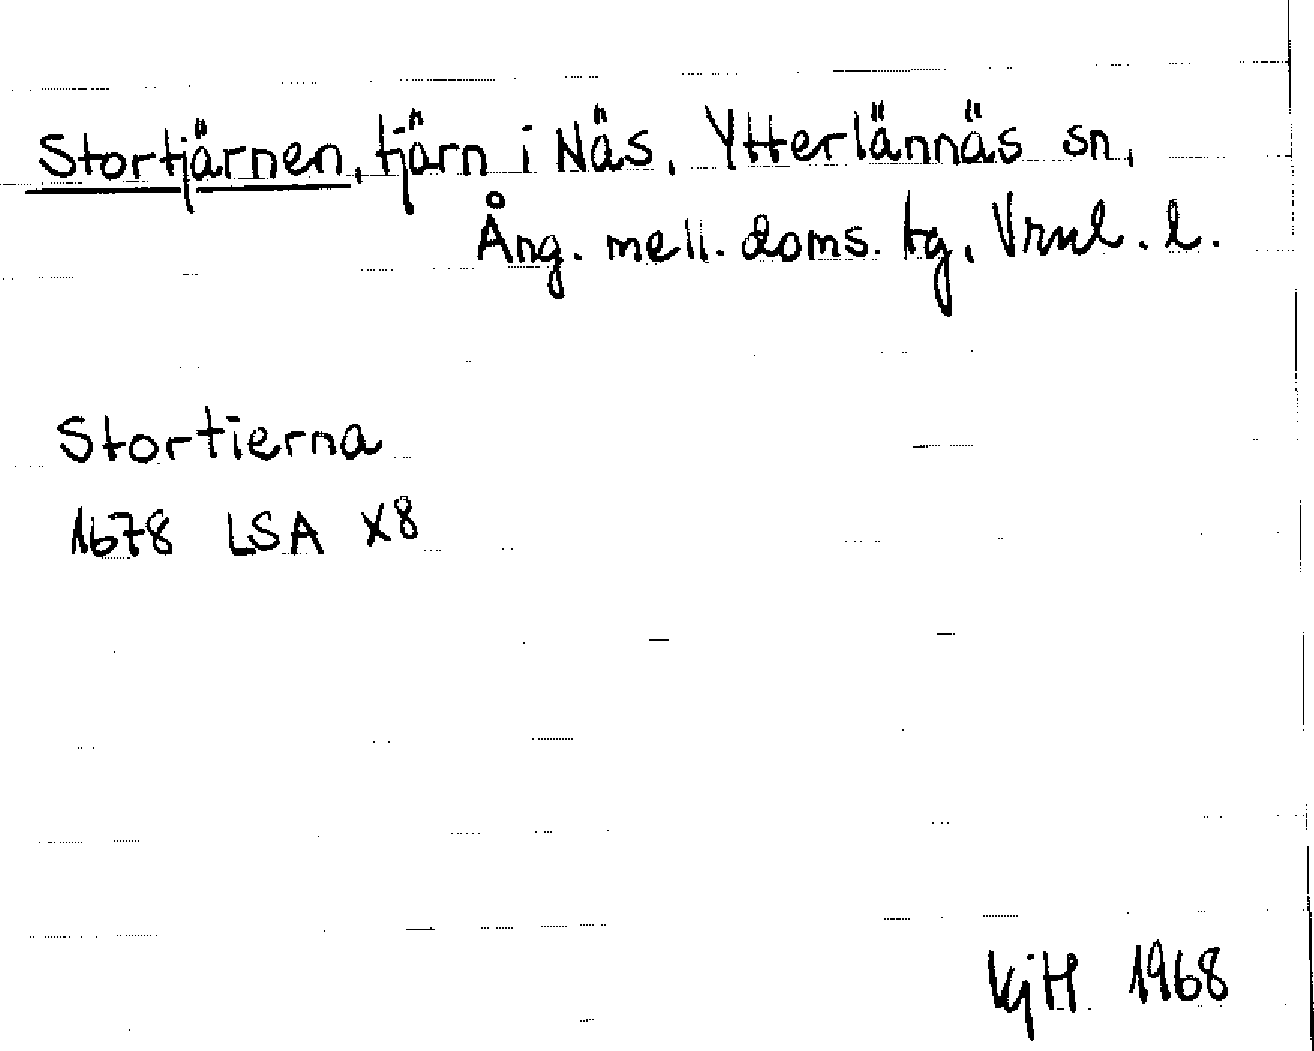 Stortjärnen, tjärn i Näs, Ytterlännäs sn,
Ång. mell. doms. tg, Vrnl. l.
Stortierna
1678 LSA X8
KjH 1968